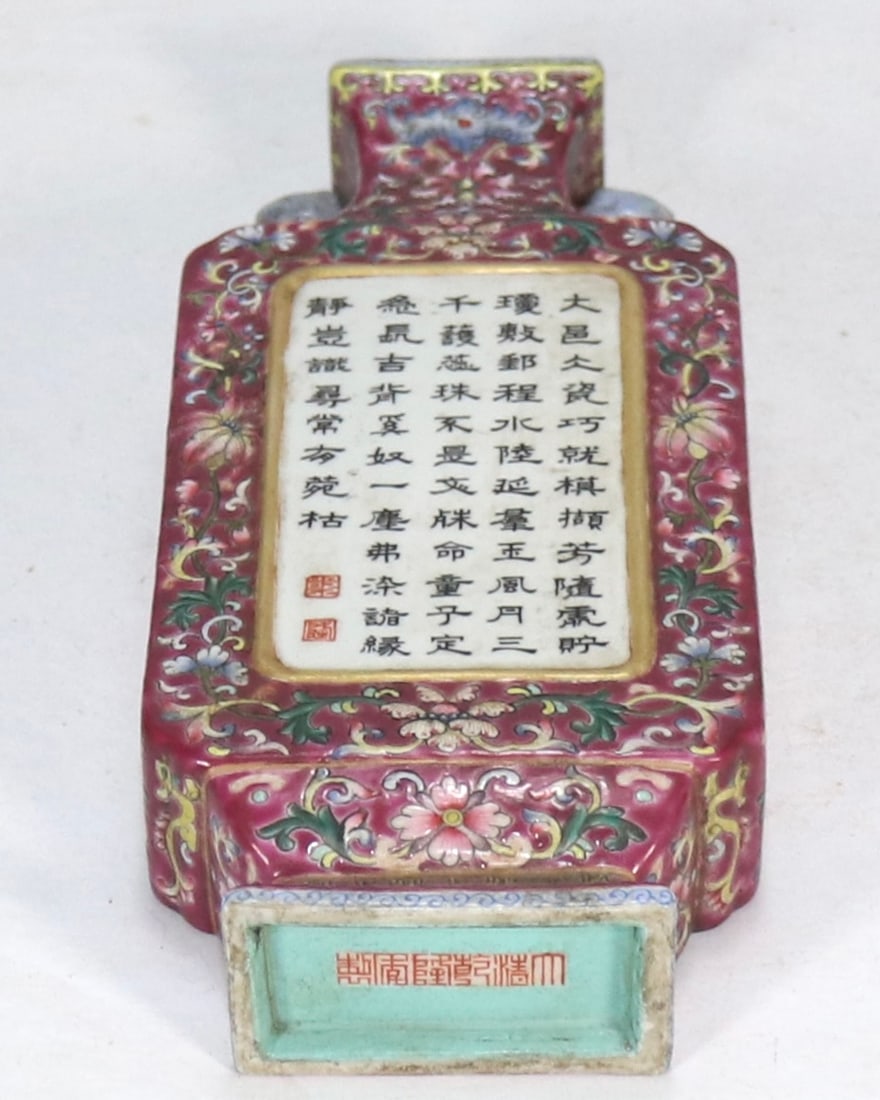 大邑仌瓷巧就模擷芳隨處貯
瓊敷郵程水陸延羣玉風月三
千護蕊珠不是文殊命童子定
急長吉背奚奴一塵弗染諸緣
靜豈識尋常有菀枯
大清乾隆年製